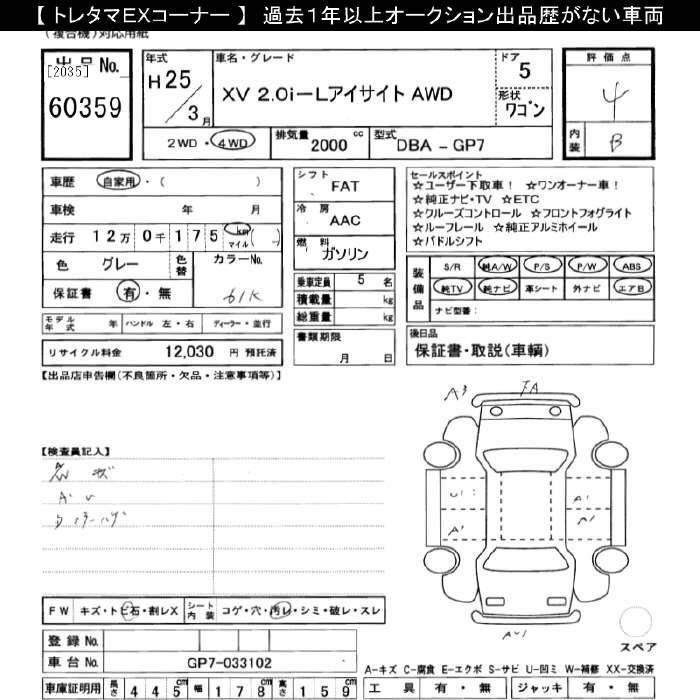 【 トレタマEXコーナー 】 過去1年以上オークション出品歴がない車両
(複合機)対応用紙
出品 No.
[2035]
60359
年式 H25/3月
車名・グレード
XV 2.0i-Lアイサイト AWD
ドア 5
形状 ワゴン
2WD・4WD
排気量 2000 cc
型式 DBA - GP7
評価点
4
内装 B
車歴 自家用・( )
車検 年 月
走行 12万0千175 km マイル ( )
色 グレー 色替 カラーNo.
61K
保証書 有・無
モデル年式 年 ハンドル 左・右 ディーラー・並行
リサイクル料金 12,030 円 預託済
シフト FAT
冷房 AAC
燃料 ガソリン
乗車定員 5 名
積載量 kg
総重量 kg
書類期限
月 日
セールスポイント
☆ユーザー下取車! ☆ワンオーナー車!
☆純正ナビ・TV ☆ETC
☆クルーズコントロール ☆フロントフォグライト
☆ルーフレール ☆純正アルミホイール
☆パドルシフト
装備品 S/R 純A/W P/S P/W ABS
純TV 純ナビ 革シート 外ナビ エアB
ナビ型番:
後日品
保証書・取説(車輌)
【出品店申告欄(不良箇所・欠品・注意事項等)】
【検査員記入】
A3
U1
A1
A1
A1
FW キズ・トビ石・割レX シート内装 コゲ・穴・汚レ・シミ・破レ・スレ
登録 No.
車台 No. GP7-033102
車庫証明用 長さ 445 cm 幅 178 cm 高さ 159 cm
スペア
A-キズ C-腐食 E-エクボ S-サビ U-凹ミ W-補修 XX-交換済
工具 有・無 ジャッキ 有・無